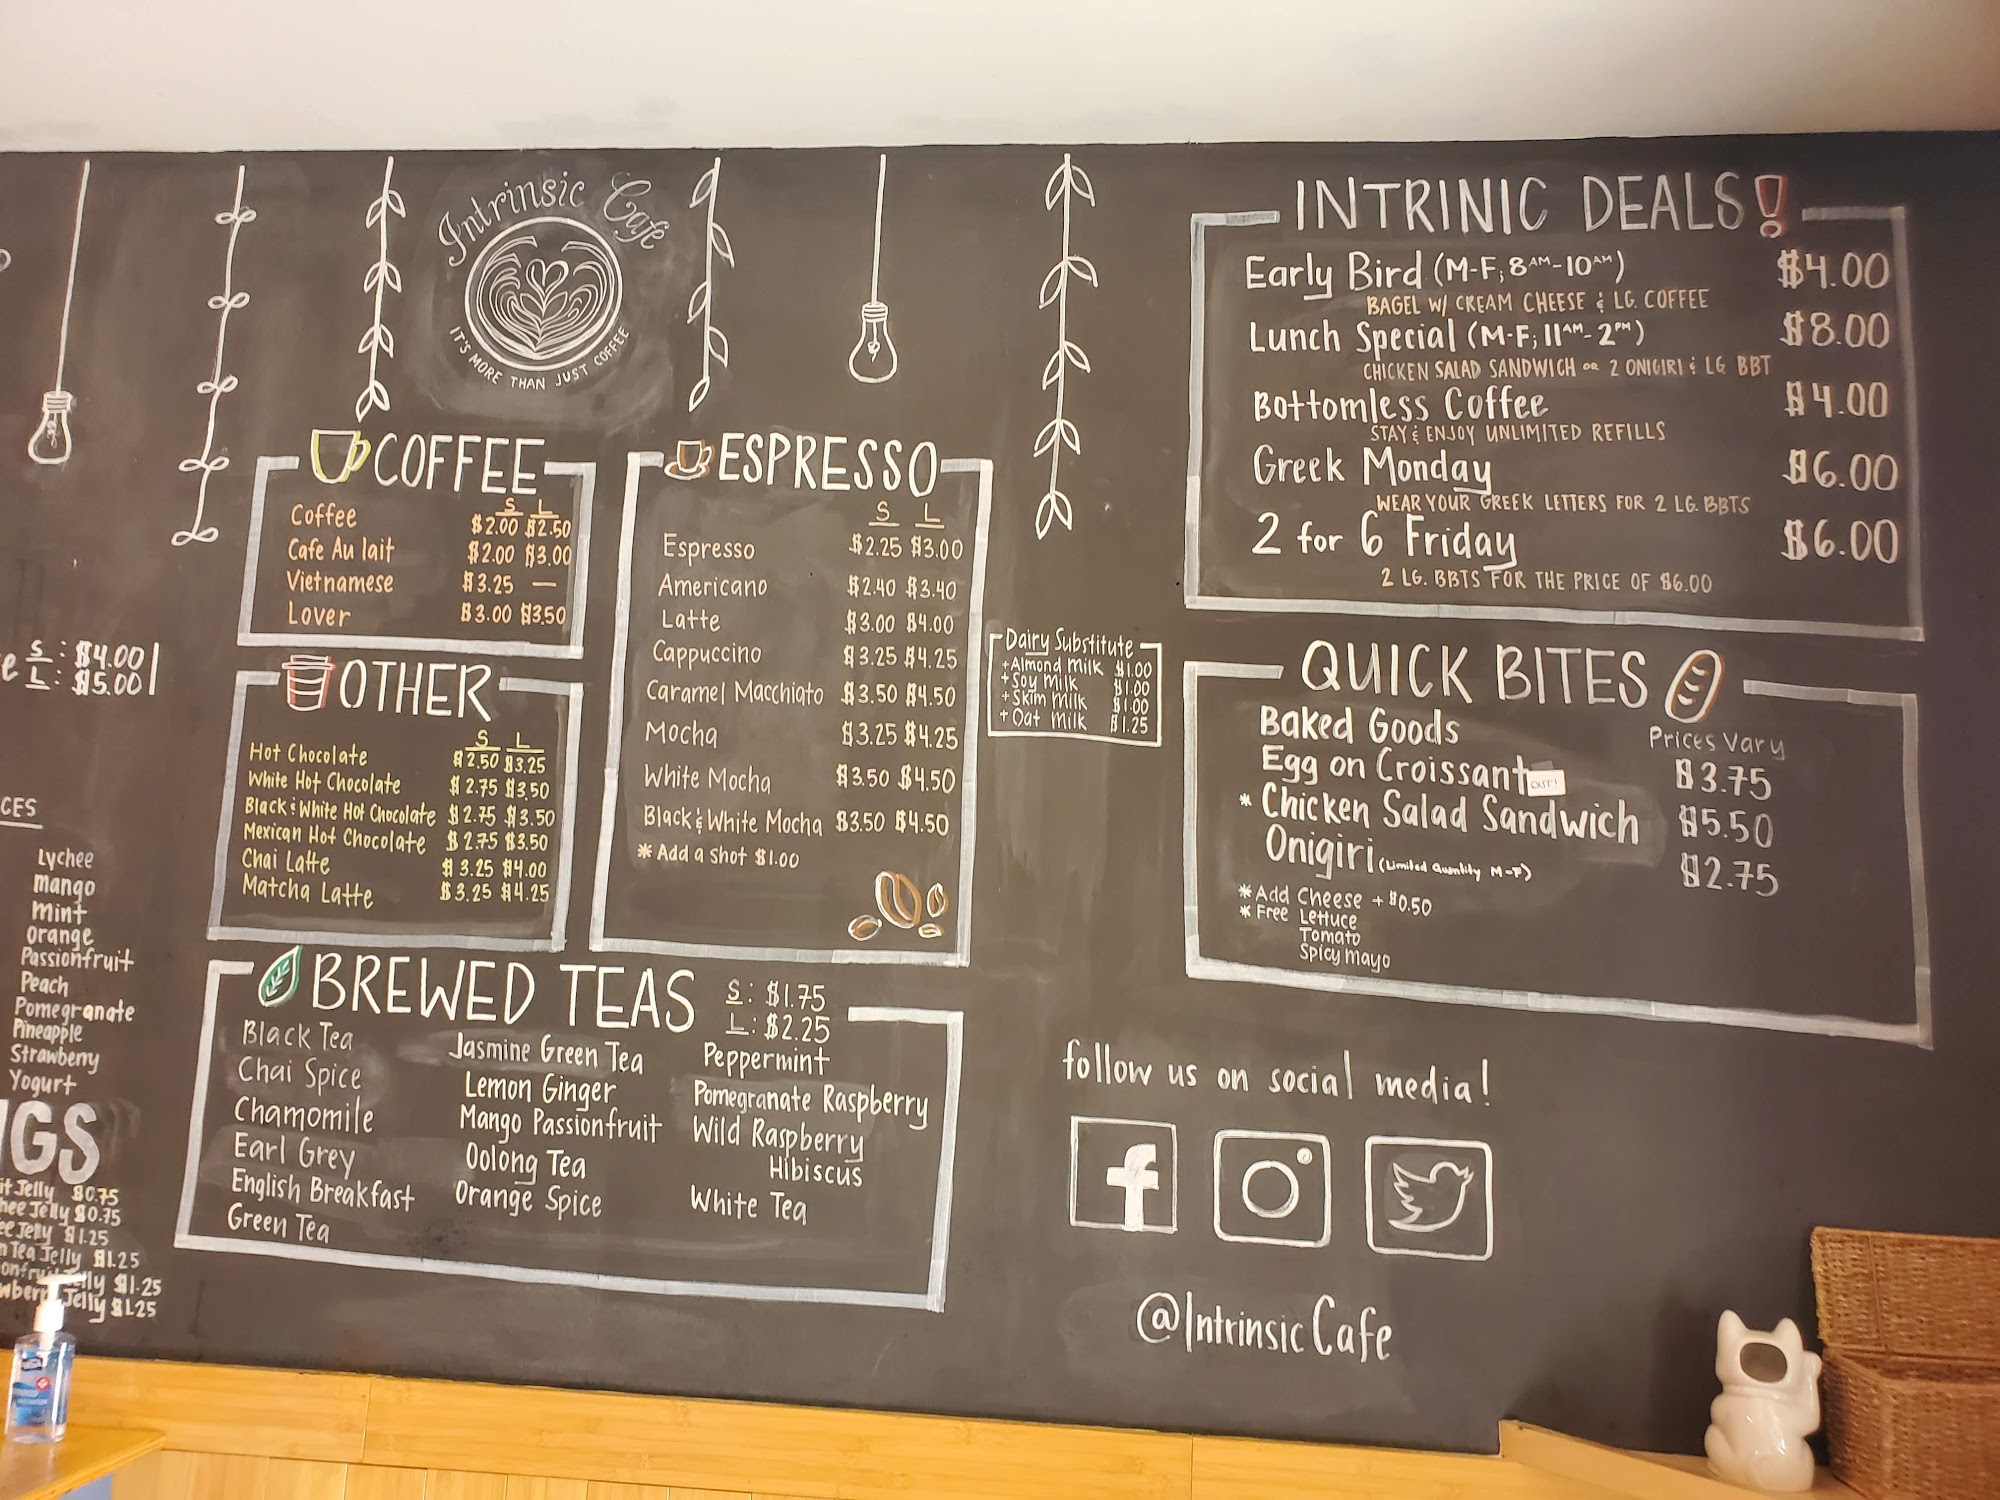 Intrinsic Cafe
IT'S MORE THAN JUST COFFEE
COFFEE
S L
Coffee $2.00 $2.50
Cafe Au lait $2.00 $3.00
Vietnamese $3.25 —
Lover $3.00 $3.50
OTHER
S L
Hot Chocolate $2.50 $3.25
White Hot Chocolate $2.75 $3.50
Black & White Hot Chocolate $2.75 $3.50
Mexican Hot Chocolate $2.75 $3.50
Chai Latte $3.25 $4.00
Matcha Latte $3.25 $4.25
ESPRESSO
S L
Espresso $2.25 $3.00
Americano $2.40 $3.40
Latte $3.00 $4.00
Cappuccino $3.25 $4.25
Caramel Macchiato $3.50 $4.50
Mocha $3.25 $4.25
White Mocha $3.50 $4.50
Black & White Mocha $3.50 $4.50
* Add a shot $1.00
Dairy Substitute
+ Almond Milk $1.00
+ Soy Milk $1.00
+ Skim Milk $1.00
+ Oat Milk $1.25
BREWED TEAS
S: $1.75
L: $2.25
Black Tea
Chai Spice
Chamomile
Earl Grey
English Breakfast
Green Tea
Jasmine Green Tea
Lemon Ginger
Mango Passionfruit
Oolong Tea
Orange Spice
Peppermint
Pomegranate Raspberry
Wild Raspberry
Hibiscus
White Tea
INTRINIC DEALS!
Early Bird (M-F; 8AM-10AM) $4.00
BAGEL W/ CREAM CHEESE & LG. COFFEE
Lunch Special (M-F; 11AM-2PM) $8.00
CHICKEN SALAD SANDWICH OR 2 ONIGIRI & LG BBT
Bottomless Coffee $4.00
STAY & ENJOY UNLIMITED REFILLS
Greek Monday $6.00
WEAR YOUR GREEK LETTERS FOR 2 LG. BBTS
2 for 6 Friday $6.00
2 LG. BBTS FOR THE PRICE OF $6.00
QUICK BITES
Baked Goods Prices Vary
Egg on Croissant OUT! $3.75
* Chicken Salad Sandwich $5.50
Onigiri (Limited Quantity M-F) $2.75
* Add Cheese + $0.50
* Free Lettuce
Tomato
Spicy mayo
follow us on social media!
@IntrinsicCafe
e S: $4.00
L: $5.00
CES
Lychee
Mango
Mint
Orange
Passionfruit
Peach
Pomegranate
Pineapple
Strawberry
Yogurt
GS
it Jelly $0.75
hee Jelly $0.75
ee Jelly $1.25
n Tea Jelly $1.25
onfru lly $1.25
wberr Jelly $1.25